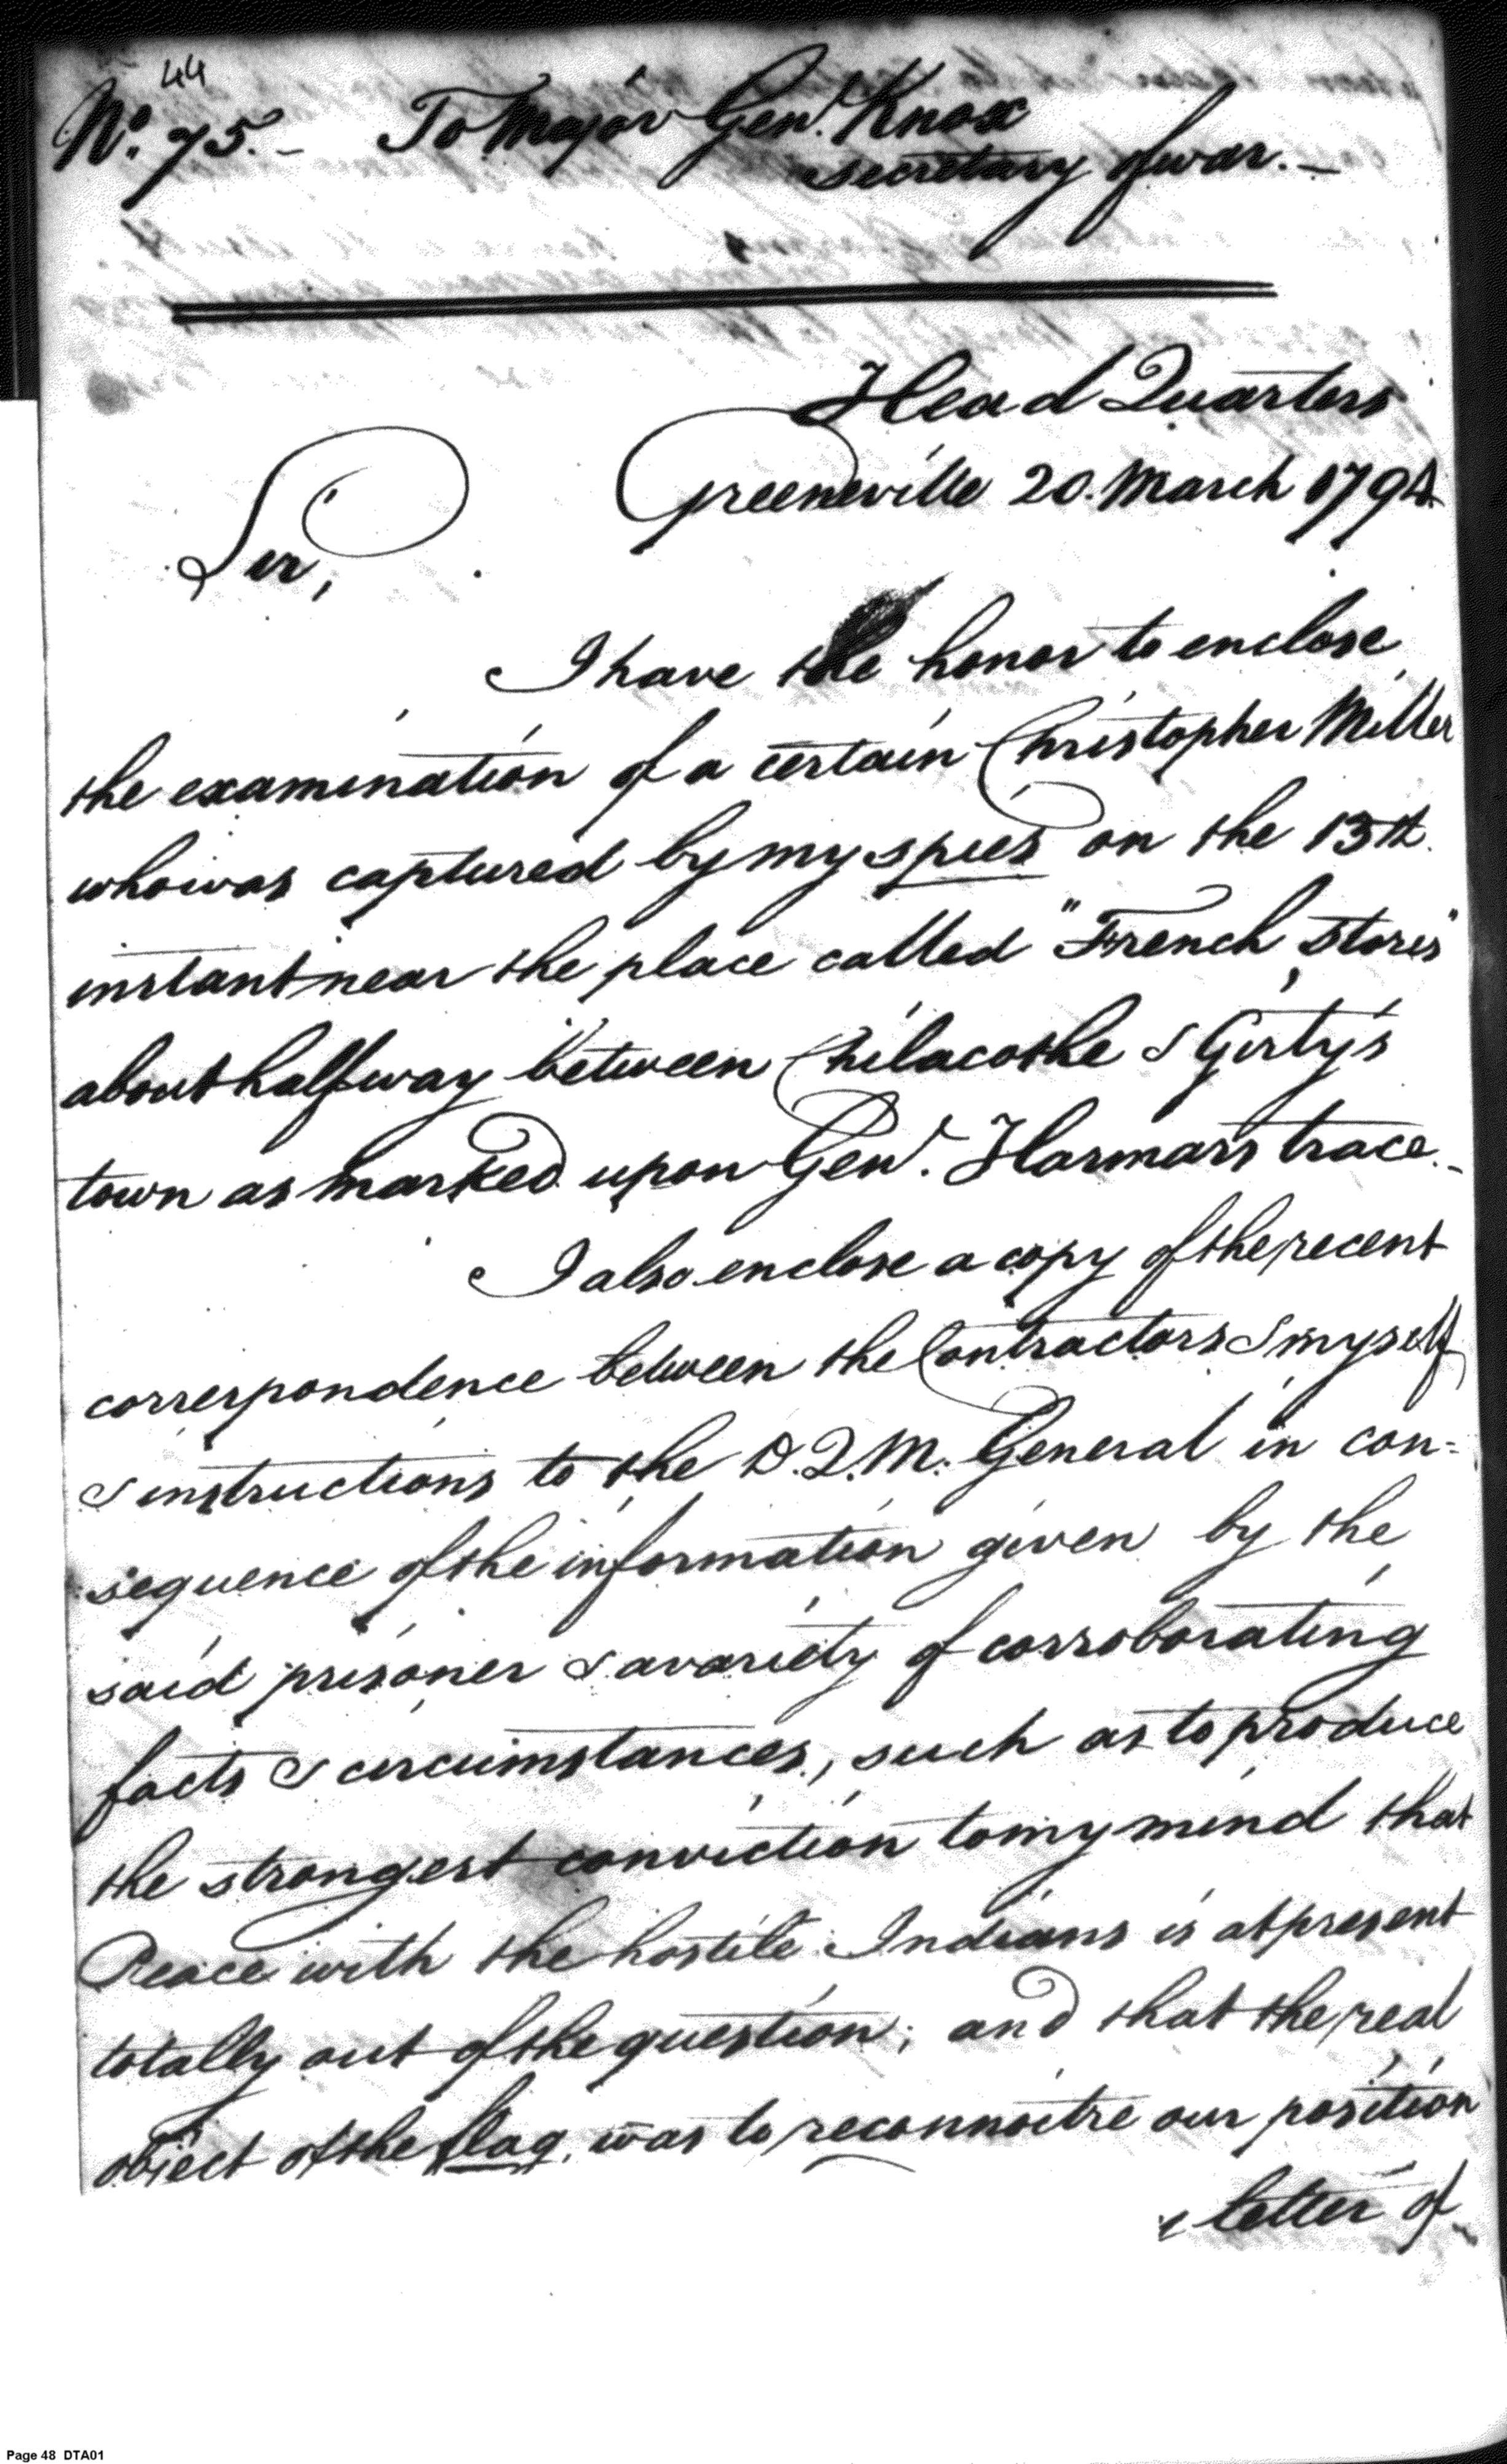 44
No. 75.- To Major Genl. Knox
secretary of war.-
Head Quarters
Greeneville 20. March 1794.
Sir,
I have the honor to enclose
the examination of a certain Christopher Miller
who was captured by my spies on the 13th.
instant near the place called "French Stores"
about halfway between Chilacothe & Girty's
town as marked upon Genl. Harmars trace.-
I also enclose a copy of the recent
correspondence between the Contractors & myself
& instructions to the D.Q.M. General in con=
sequence of the information given by the
said prisoner & a variety of corroborating
facts & circumstances, such as to produce
the strongest conviction to my mind that
Peace with the hostile Indians is at present
totally out of the question; and that the real
object of the flag, was to reconnoitre our position
letter of
Page 48 DTA01